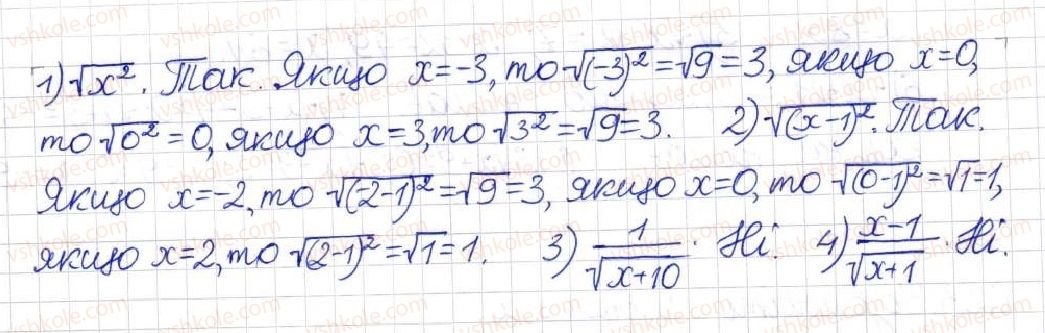 1) √x². Так. Якщо x=-3, то √(-3)² = √9 = 3, якщо x=0,
то √0² = 0, якщо x=3, то √3² = √9 = 3. 2) √(x-1)². Так.
Якщо x=-2, то √(-2-1)² = √9 = 3, якщо x=0, то √(0-1)² = √1 = 1,
якщо x=2, то √(2-1)² = √1 = 1. 3) 1/√x+10. Ні. 4) x-1/√x+1. Ні.